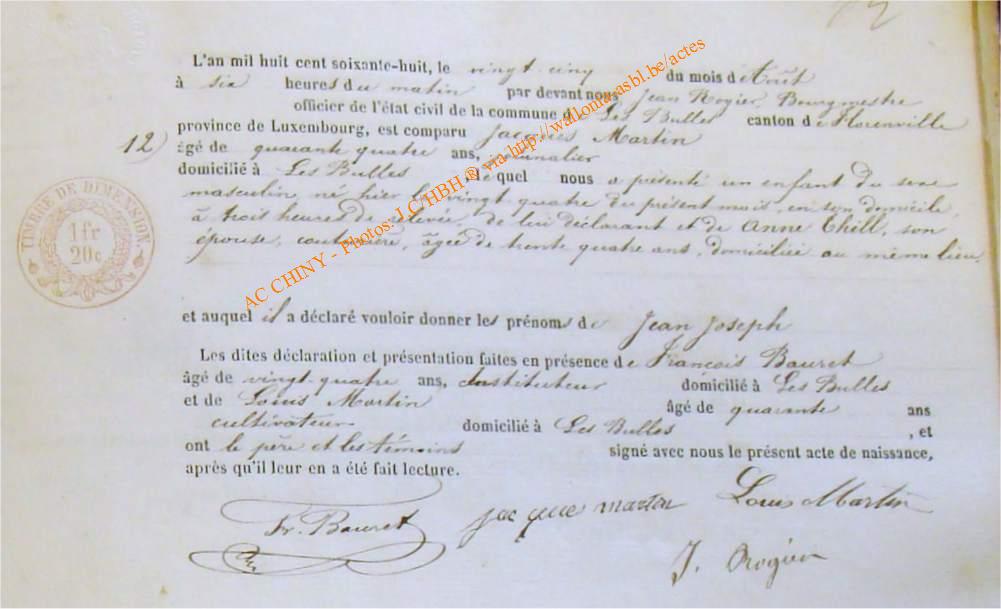 L'an mil huit cent soixante-huit, le vingt cinq du mois d'Août
à six heures du matin par devant nous Jean Rogier, Bourgmestre
officier de l'état civil de la commune de Les Bulles canton de Florenville
12) province de Luxembourg, est comparu Jacques Martin
âgé de quarante quatre ans, journalier
domicilié à Les Bulles, lequel nous a présenté un enfant du sexe
masculin, né hier le vingt quatre du présent mois, en son domicile,
à trois heures de relevée, de lui déclarant et de Anne Thill, son
épouse, couturière, âgée de trente quatre ans, domiciliée au même lieu.
TIMBRE DE DIMENSION
1 fr
20 c
et auquel il a déclaré vouloir donner les prénoms de Jean Joseph
Les dites déclaration et présentation faites en présence de François Bauret
âgé de vingt-quatre ans, Instituteur domicilié à Les Bulles
et de Louis Martin âgé de quarante ans
cultivateur domicilié à Les Bulles, et
ont le père et les témoins signé avec nous le présent acte de naissance,
après qu'il leur en a été fait lecture.
Fr. Bauret jacque martin Louis Martin
J. Rogier
AC CHINY - Photos: J.C.HBH ® via http://wallonia-asbl.be/actes